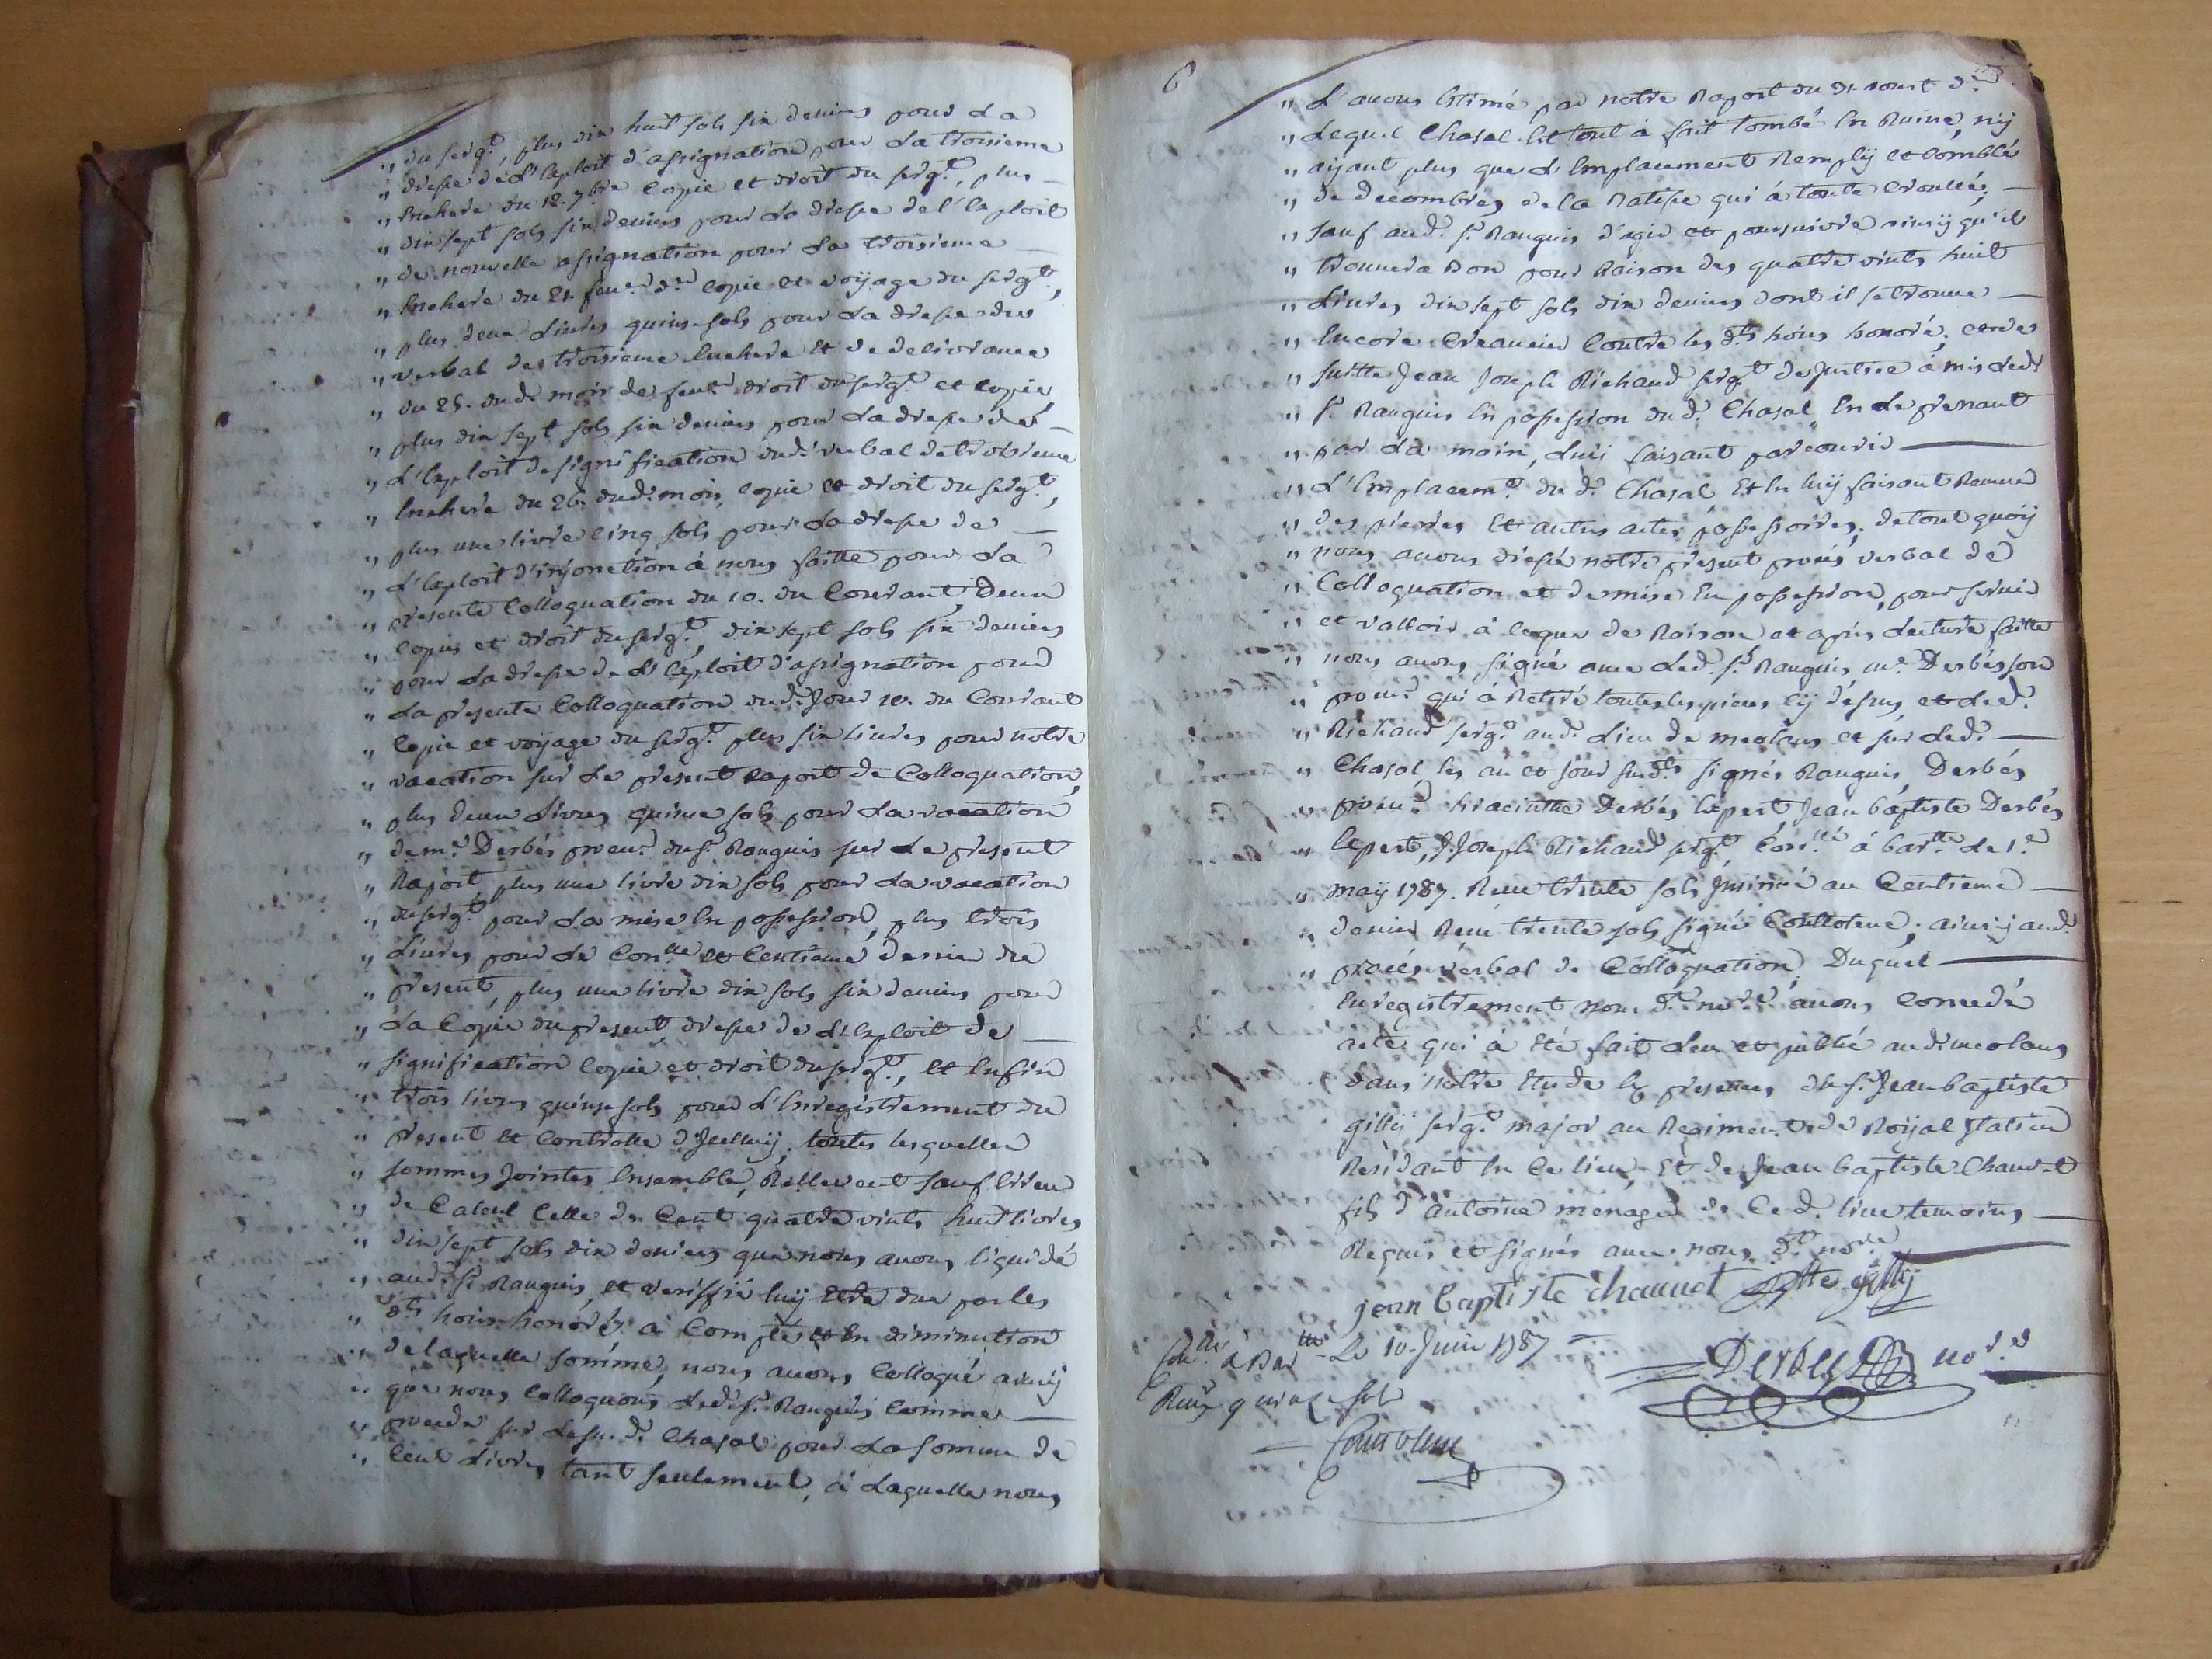 „ du serg.t, plus dix huit sols six deniers pour la
„ dresse de l'exploit d'assignation pour la troisieme
„ Enchere du 12. 7.bre copie et droit du serg.t, plus
„ dix sept sols six deniers pour la dresse de l'exploit
„ de nouvelle assignation pour la troisieme
„ Enchere du 21. feu.r d.er copie et voÿage du serg.t,
„ plus deux Livres quinse sols pour la dresse du
„ verbal de troisieme Enchere et de delivrance
„ du 25. dud. mois de feu.r droit du serg.t et copie,
„ plus dix sept sols six deniers pour la dresse de
„ L'Exploit de signification dud. verbal de troisieme
„ Enchere du 26. dud. mois, copie et droit du serg.t,
„ plus une livre cinq sols pour la dresse de
„ L'exploit d'injonction à nous faitte pour la
„ presente Colloquation du 10. du Courant, Deux
„ copies et droit du serg.t, dix sept sols six deniers
„ pour la dresse de L'Exploit d'assignation pour
„ La presente Colloquation dud. Jour 10. du Courant
„ Copie et voÿage du serg.t plus six livres pour notre
„ vacation sur le present raport de Colloquation,
„ plus deux Livres quinse sols pour la vacation
„ de m.e Derbés procu.r du s.r Rauguis sur le present
„ Raport, plus une livre dix sols pour la vacation
„ du serg.t pour La mise En possession, plus trois
„ Livres pour le Con.lle et Centieme denier du
„ present, plus une livre dix sols six deniers pour
„ La Copie du present, dresse de L'Exploit de
„ signification copie et droit du serg.t, Et Enfin
„ trois livres quinse sols pour L'Enregistrement du
„ present Et Controlle d'Jcelluÿ, toutes lesquelles
„ sommes Jointes Ensemble, Rellevent sauf Erreur
„ de Calcul Celle de Cent quatre vints huit livres
„ dix sept sols dix deniers que nous avons liquidé
„ aud. s.r Rauguis, et veriffié luÿ Etre due par les
„ d.ts hoirs honoré, à Compte et En diminution
„ de laquelle somme, nous avons Colloqué ainsÿ
„ que nous Colloquons Led. s.r Rauguis Comme
„ procede sur Lesusd. Chasal pour La somme de
„ Cent Livres tant seulement, à Laquelle nous
6
„ L'avons Estimé par notre Raport du 31. aout d.er
„ Lequel Chasal Est tout à fait tombé En Ruine, nÿ
„ aÿant plus que L'Emplacement Remplÿ et Comblé
„ de decombres de la Batisse qui à toute Croullée,
„ sauf aud. s.r Rauguis d'agir et poursuivre ainsÿ qu'il
„ trouvera Bon pour Raison des quatre vints huit
„ Livres dix sept sols dix deniers dont il se trouve
„ Encore Creancier Contre les d.ts hoirs honoré, et de
„ suitte Jean Joseph Richaud serg.t de Justice à mis Led.
„ s.r Rauguis En possession dud. Chasal En Le prenant
„ par La main, Luÿ faisant parcourir
„ L'Emplacem.t du d. Chasal Et En luÿ faisant Remuer
„ des pierres Et autres actes possessoires, de tout quoÿ
„ nous avons dressé notre present procés verbal de
„ Colloquation et de mise En possession, pour servir
„ et valloir à Ce que de Raison et aprés Lecture faitte
„ nous avons signé avec Led. s.r Rauguis, m.e Derbés son
„ procu.r qui à Retiré toutes les pieces cÿ dessus, et Led.
„ Richaud serg.t aud. Lieu de meolans et sur Led.
„ Chasal les an et Jour susd.ts signés Rauguis, Derbés
„ procu.r hiacinthe Derbés Expert Jean baptiste Derbés
„ Expert, J. Joseph Richaud serg.t, Con.llé à bar.tte Le 1.er
„ maÿ 1787. Receu trente sols Jnsinué au Centieme
„ denier Receu trente sols signé Couttolenc, ainsÿ aud.
„ procés verbal de Colloquation, Duquel
Enregistrement nous d.t no.re avons Concedé
acte qui à Eté fait Leu et publié aud. meolans
dans notre Etude En presences du s.r Jean baptiste
gillÿ serg.t major au Regiment de Roÿal Jtalien
Residant En Ce lieu, Et de Jean baptiste Chauvet
fils d'antoine menager de Ce d. lieu temoins
Requis et signés avec nous d.t no.re
jean baptiste chauvet Bptte gillÿ
Con.llé à Bar.tte Le 10. Juin 1787
Receu quinze sols
Couttolenc
Derbez no.re